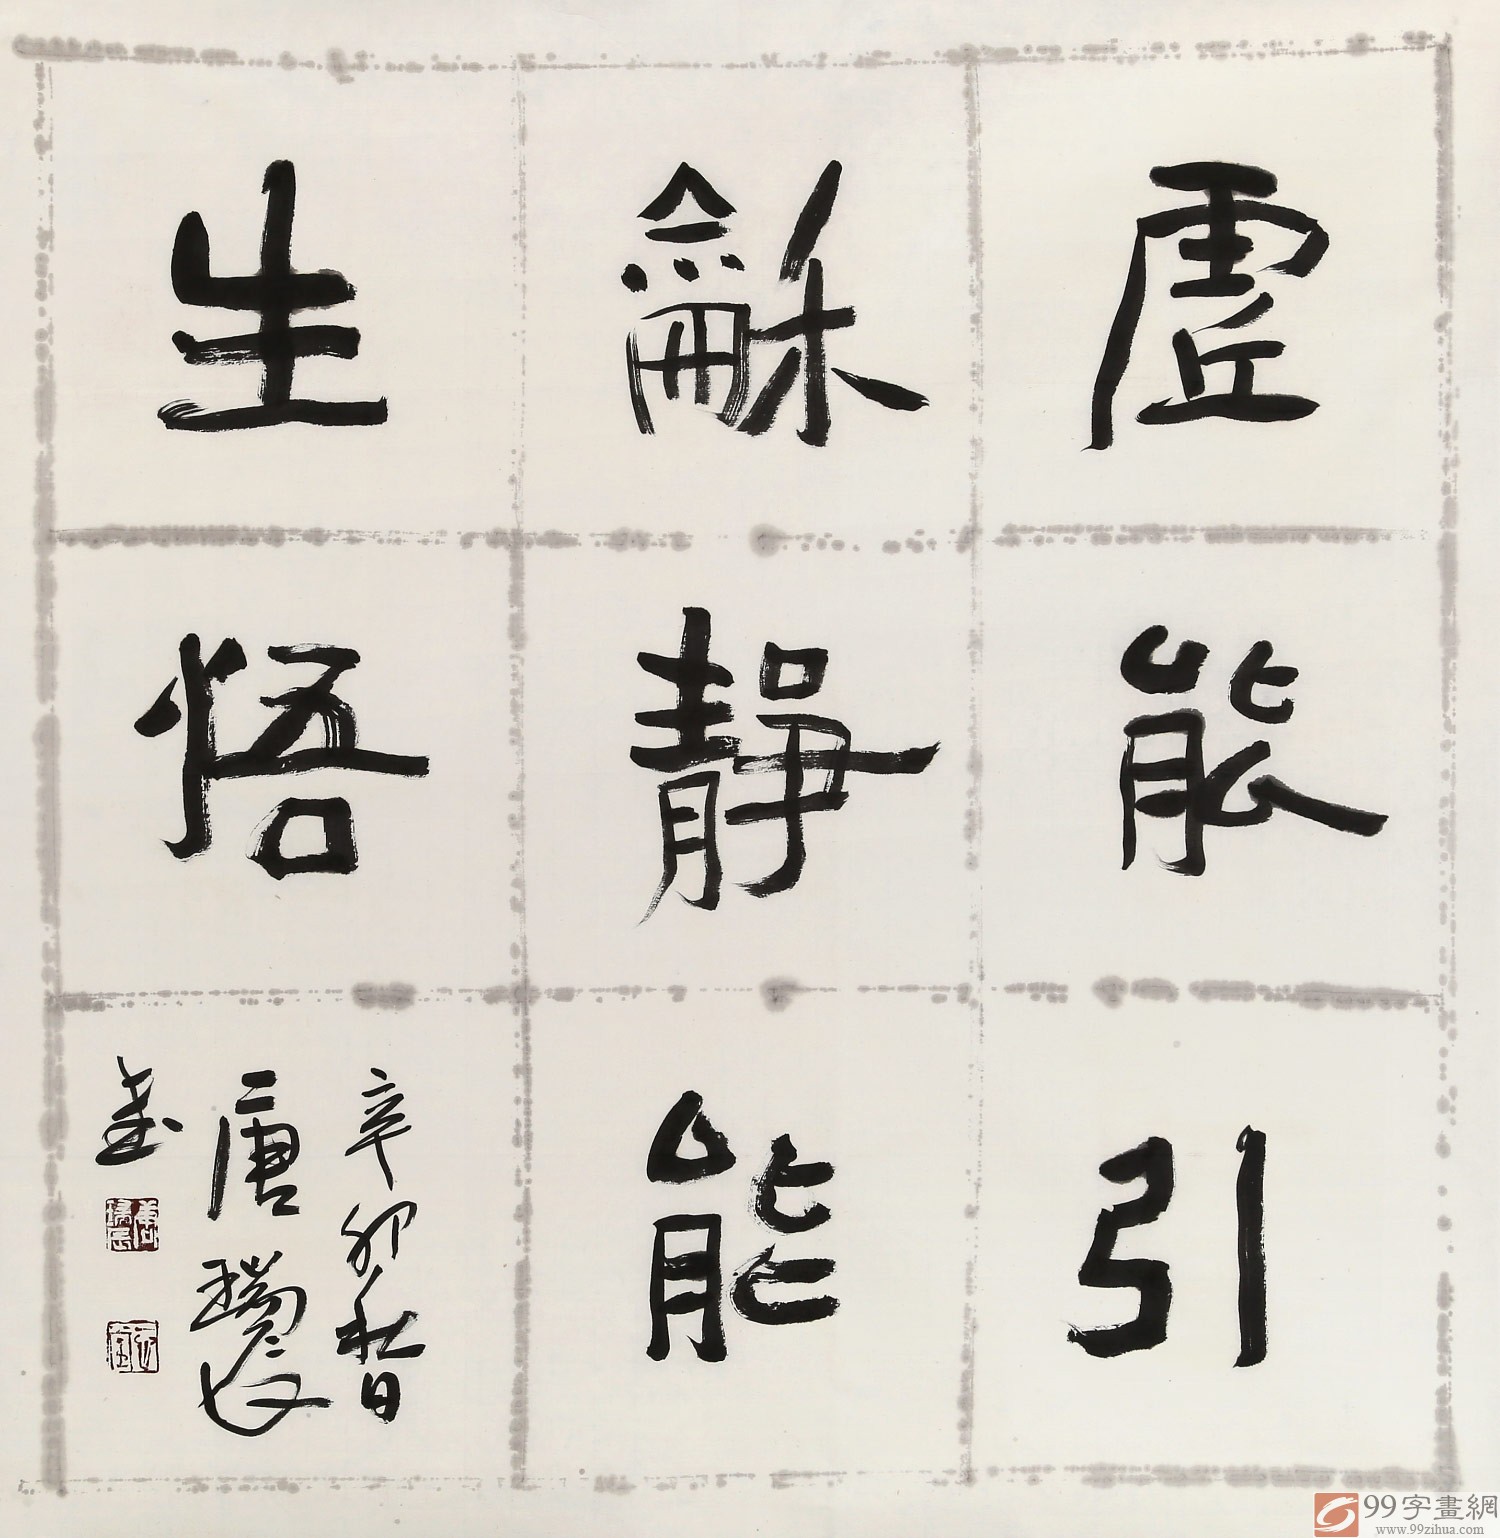 虛能引
龢靜能
生悟
辛卯秋日
唐瑞
書
99字畫網
www.99zihua.com